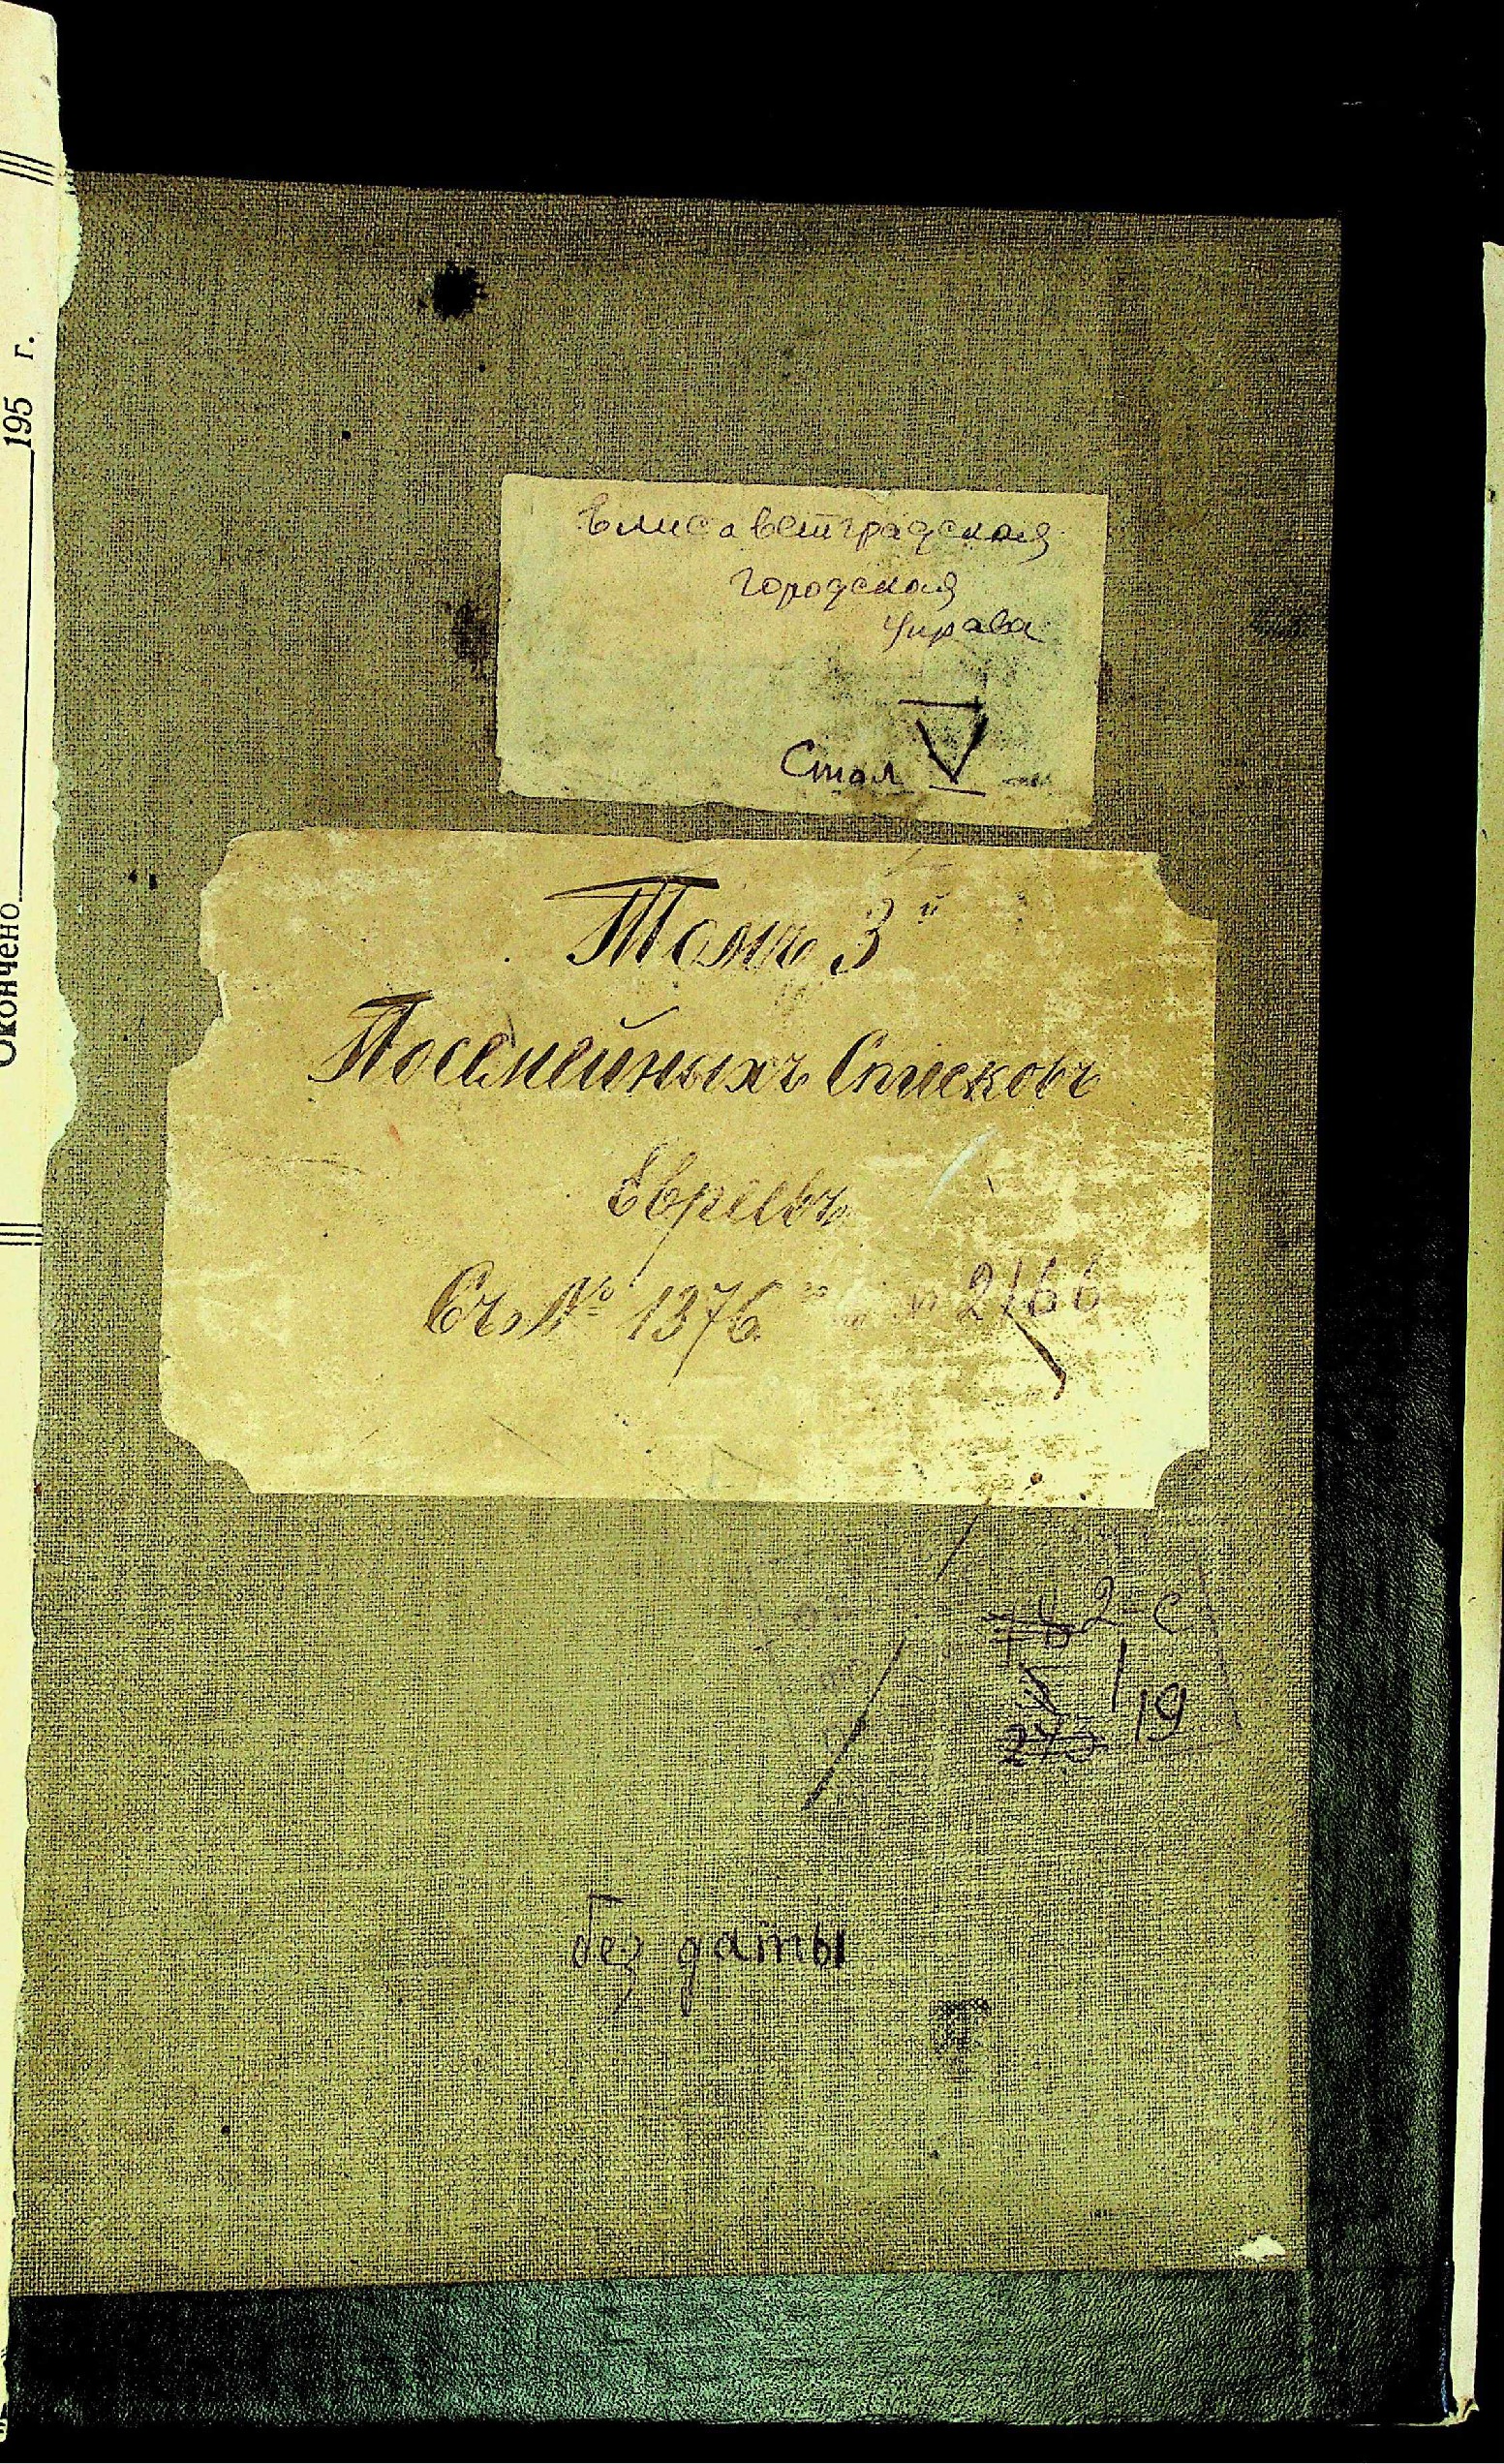 Елисаветградская
городская
управа
Стол V
Томъ 3й
Посемейныхъ Списковъ
Евреевъ
Съ № 1376го 2166
2-с
19
без даты
Окончено 195 г.